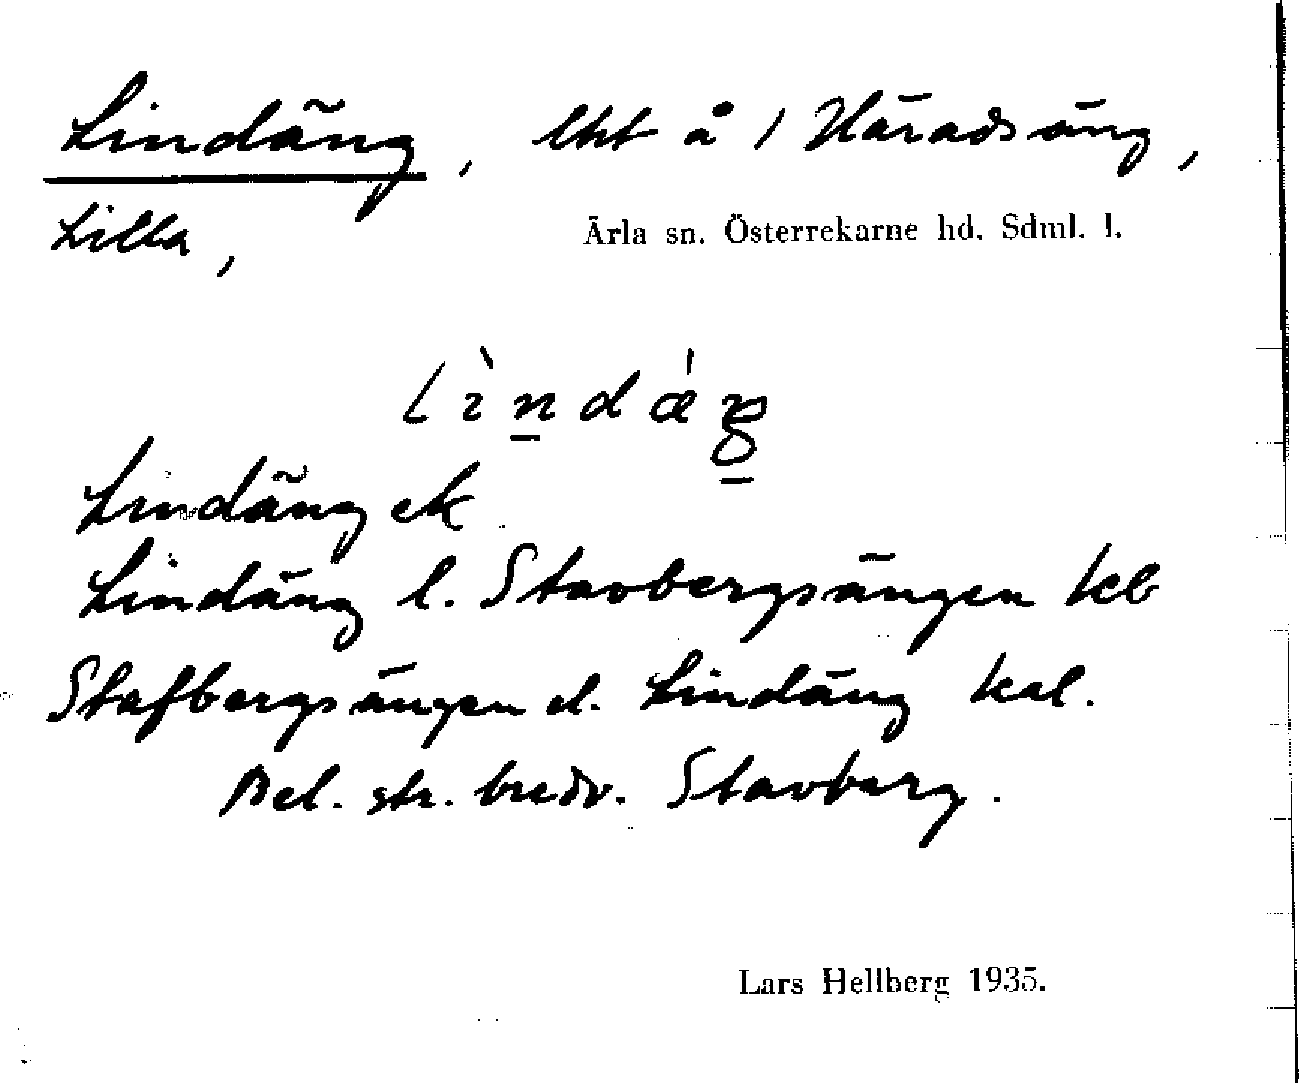 Lindäng, lht å 1 Häradsäng,
Lilla,
Ärla sn. Österrekarne hd. Sdml. l.
Lindäng ek
Lindäng l. Stavbergsängen kb
Stafbergsängen el. Lindäng kal.
Bel. str. bredv. Stavberg.
Lars Hellberg 1935.